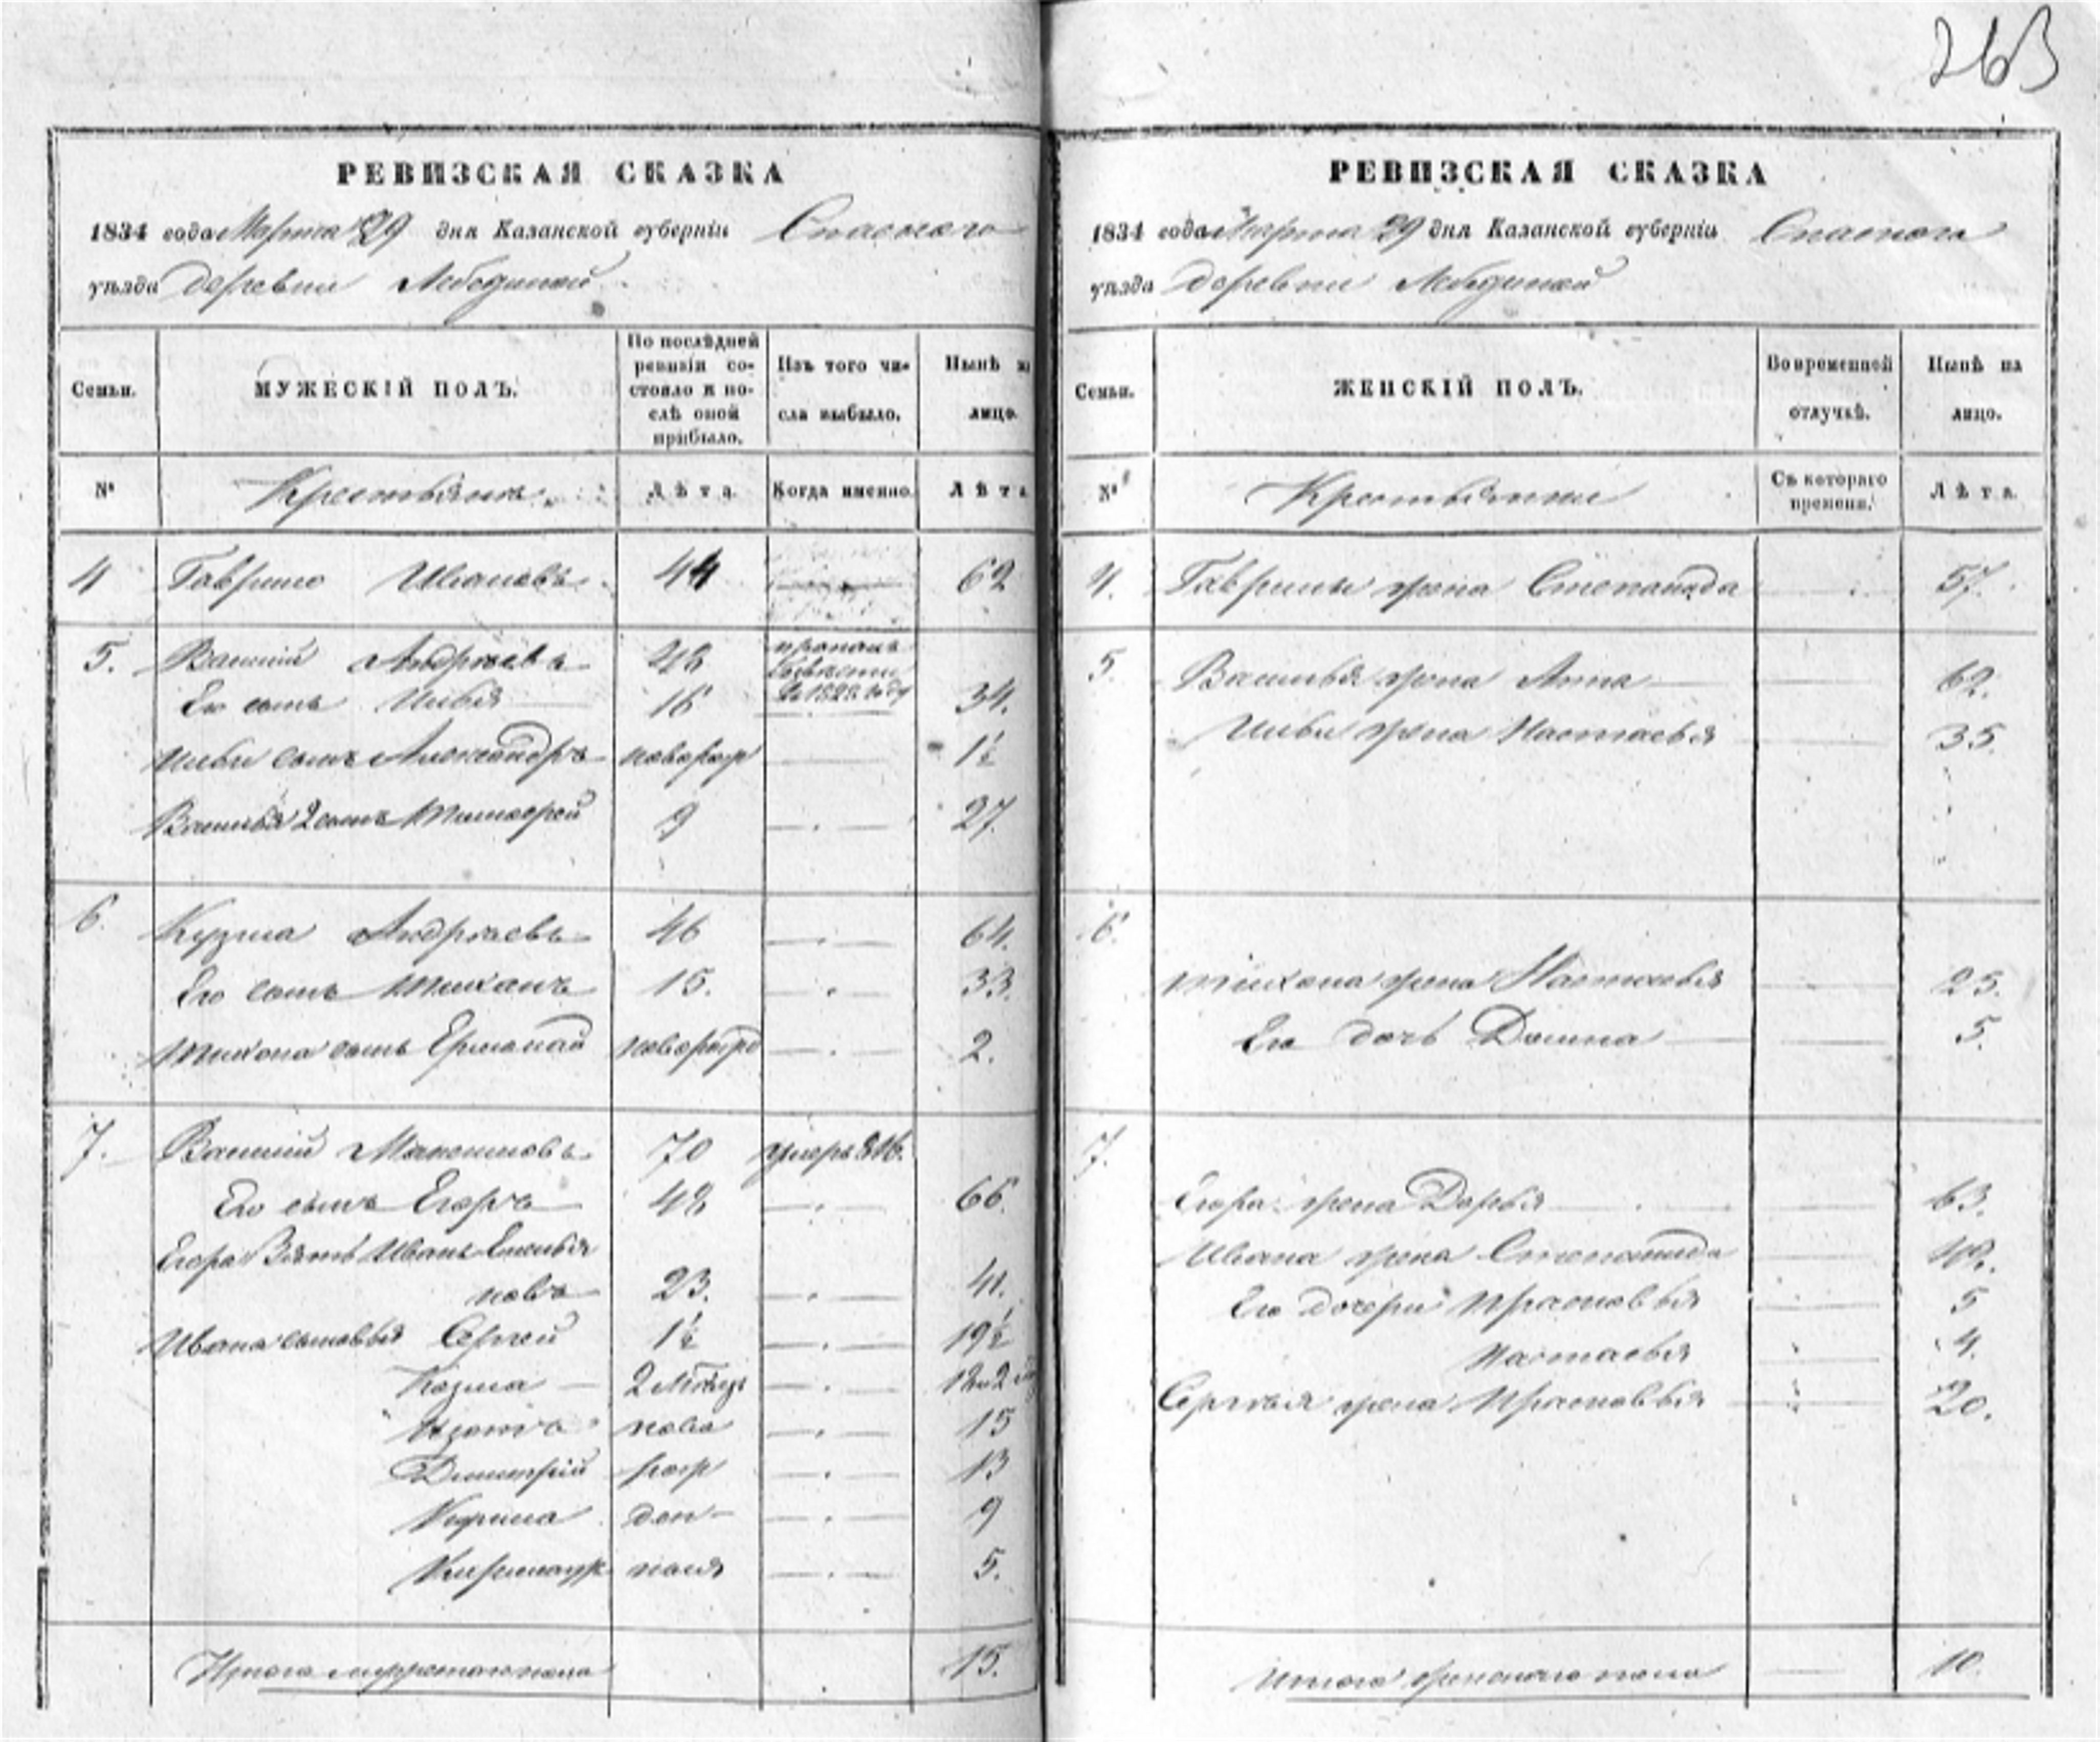 263
РЕВИЗСКАЯ СКАЗКА
1834 года Марта 29 дня Казанской губерніи Спаскаго
уѣзда деревни Лебединой
Семьи.
МУЖЕСКІЙ ПОЛЪ.
По послѣдней ревизіи состояло и послѣ оной прибыло.
Изъ того числа выбыло.
Нынѣ на лицо.
№
Крестьянъ
Лѣта.
Когда именно.
Лѣта
4 Гаврило Ивановъ 44 62
5. Василій Андреевъ 48 пропалъ безвести въ 1828 году
Его сынъ Илья 16 34.
Ильи сынъ Александръ новорож 1½
Василья 2 сынъ Тимофей 9 27.
6. Кузма Андреевъ 46 64.
Его сынъ Тихонъ 15. 33.
Тихона сынъ Ермолай новорожд 2.
7. Василій Максимовъ 70 умеръ 816.
Его сынъ Егоръ 48 66.
Егора Зять Иванъ
новъ 23. 41.
Ивана сыновья Сергей 1½ 19½
Козма 2 18
Изотъ ново 15
Дмитрій рож 13
ден 9
ныя 5.
Итого мужеска пола 15.
РЕВИЗСКАЯ СКАЗКА
1834 года Марта 29 дня Казанской губерніи Спаскаго
уѣзда деревни Лебединой
Семьи.
ЖЕНСКІЙ ПОЛЪ.
Во временной отлучкѣ.
Нынѣ на лицо.
№
Съ котораго времени.
Лѣта.
4. Гаврилы жена Степанида 57.
5. Василья жена Анна 62.
Ильи жена Настасья 35.
6.
Тихона жена Настасья 25.
Его дочь Домна 5.
7.
Егора жена Дарья 63.
Ивана жена Степанида 40.
Его дочери Прасковья 5
Настасья 4.
Сергея жена Прасковья 20.
Итого женскаго пола 10.